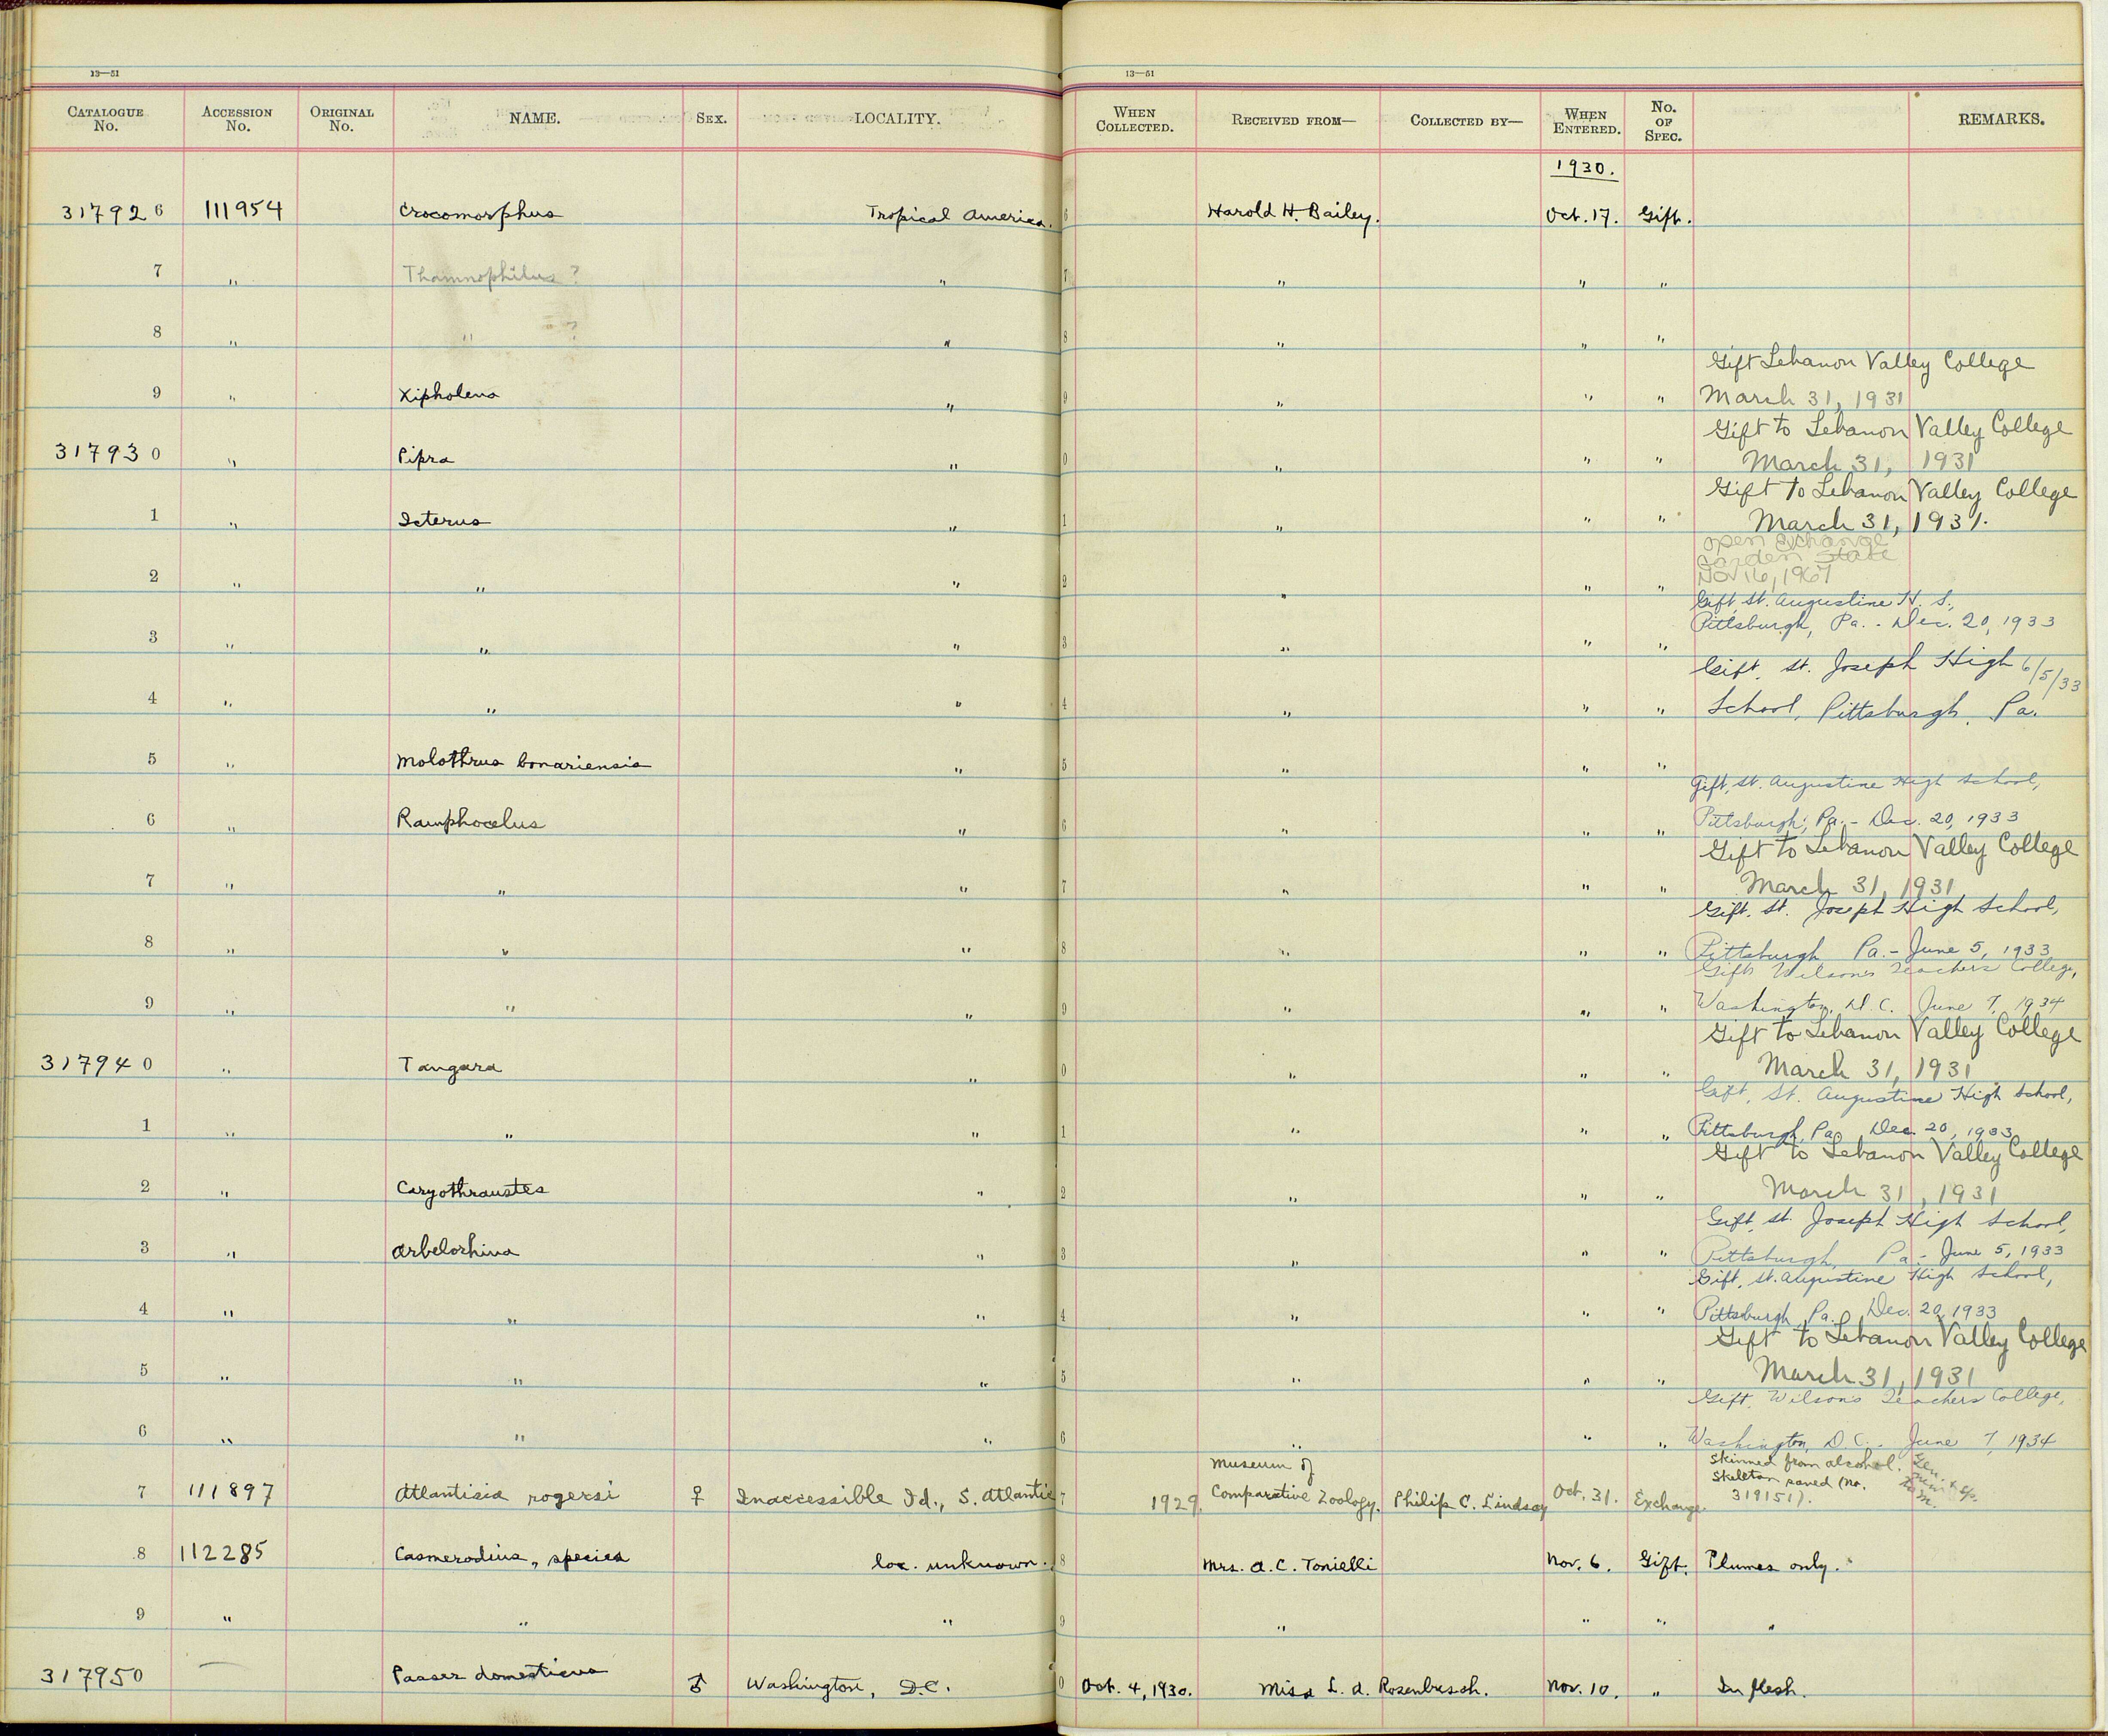 13—51
13—51
CATALOGUE No. ACCESSION No. ORIGINAL No. NAME. SEX. LOCALITY. WHEN COLLECTED. RECEIVED FROM— COLLECTED BY— WHEN ENTERED. No. OF SPEC. REMARKS.
1930.
317926 111954 Crocomorphus Tropical America. 6 Harold H. Bailey. Oct. 17. Gift.
7 " Thamnophilus ? " 7 " " "
8 " " ? " 8 " " "
Gift Lebanon Valley College
9 " Xipholena " 9 " " " March 31, 1931
Gift to Lebanon Valley College
317930 " Pipra " 0 " " " March 31, 1931
Gift to Lebanon Valley College
1 " Icterus " 1 " " " March 31, 1931.
open exchange
Garden State
2 " " " 2 " " " Nov 16, 1967
Gift, St. Augustine H. S.,
3 " " " 3 " " " Pittsburgh, Pa. - Dec. 20, 1933
Gift. St. Joseph High 6/5/33
4 " " " 4 " " " School, Pittsburgh, Pa.
5 " Molothrus bonariensis " 5 " " "
Gift, St. Augustine High School,
6 " Ramphocelus " 6 " " " Pittsburgh, Pa. - Dec. 20, 1933
Gift to Lebanon Valley College
7 " " " 7 " " " March 31, 1931
Gift. St. Joseph High School,
8 " " " 8 " " " Pittsburgh Pa. - June 5, 1933
Gift Wilsons Teachers College,
9 " " " 9 " " " Washington, D.C. June 7, 1934
Gift to Lebanon Valley College
317940 " Tangara " 0 " " " March 31, 1931
Gift, St. Augustine High School,
1 " " " 1 " " " Pittsburgh, Pa. Dec. 20, 1933
Gift to Lebanon Valley College
2 " Caryothraustes " 2 " " " March 31, 1931
Gift, St. Joseph High School,
3 " Arbelorhina " 3 " " " Pittsburgh, Pa. - June 5, 1933
Gift, St. Augustine High School,
4 " " " 4 " " " Pittsburgh, Pa. Dec. 20, 1933
Gift to Lebanon Valley College
5 " " " 5 " " " March 31, 1931
Gift. Wilsons Teachers College,
6 " " " 6 " " " Washington, D.C. - June 7, 1934
Museum of Skinned from alcohol. Gen. + sp.
7 111897 Atlantisia rogersi ♀ Inaccessible Id., S. Atlantic 7 1929. Comparative Zoology. Philip C. Lindsay Oct. 31. Exchange Skeleton saved (no. new to
319151). m.
8 112285 Casmerodius, species loc. unknown. 8 Mrs. A. C. Tonielli Nov. 6. Gift. Plumes only.
9 " " " 9 " " " "
317950 — Passer domesticus ♂ Washington, D.C. 0 Oct. 4, 1930. Miss L. A. Rosenbusch. Nov. 10. " In flesh.